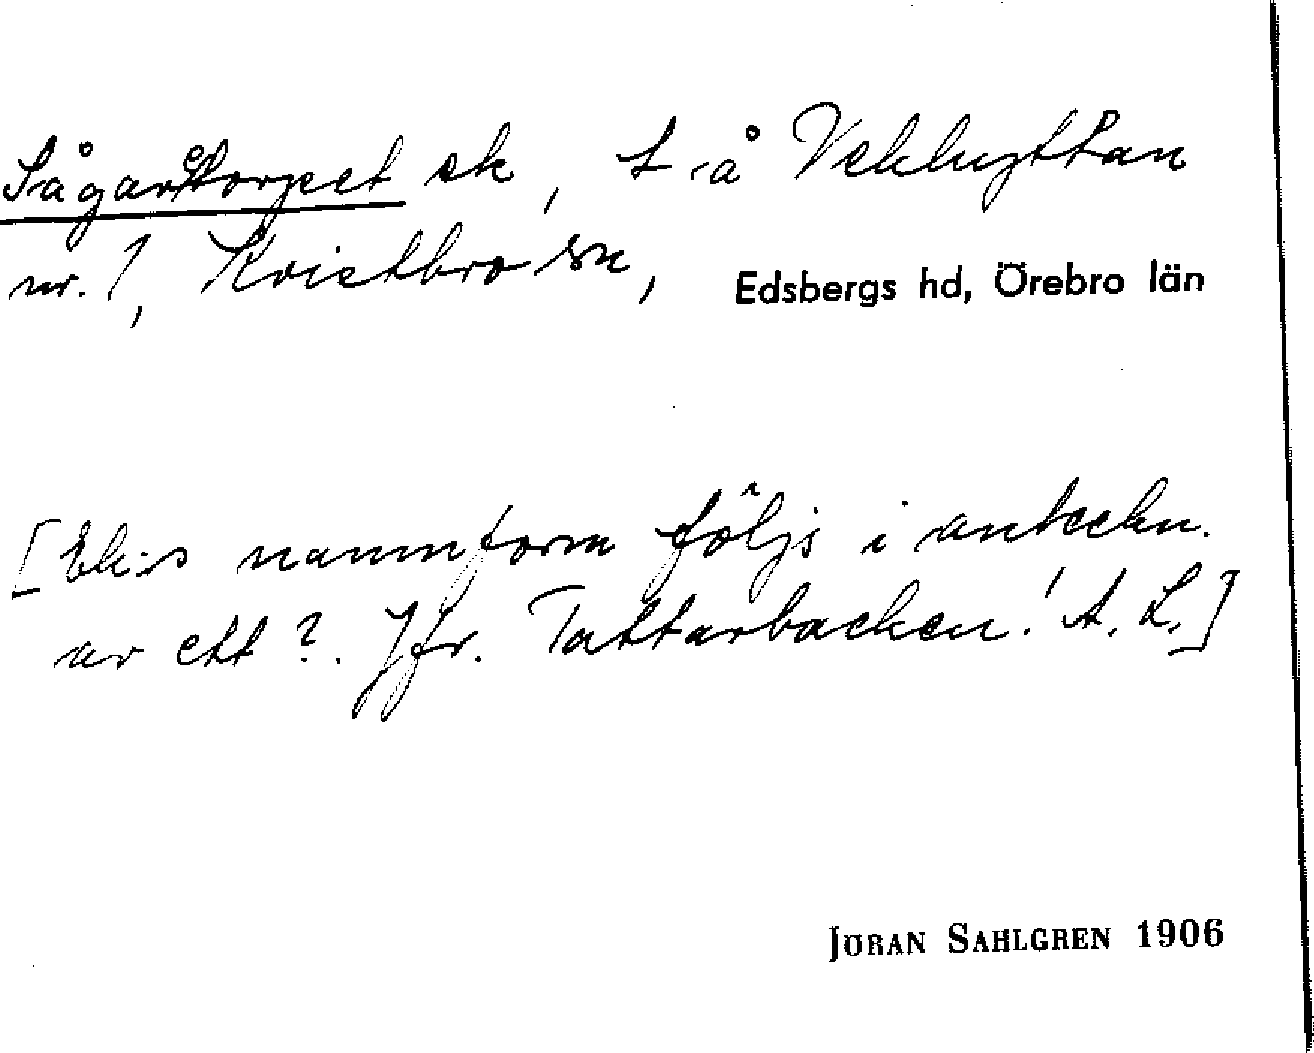 Sågaretorpet ek, t. å Vekhyttan
nr. 1, Kvistbro sn, Edsbergs hd, Örebro län
[Ek:s namnform följs i anteckn.
av ett ?. Jfr. Tattarbacken! A. L.]
JÖRAN SAHLGREN 1906